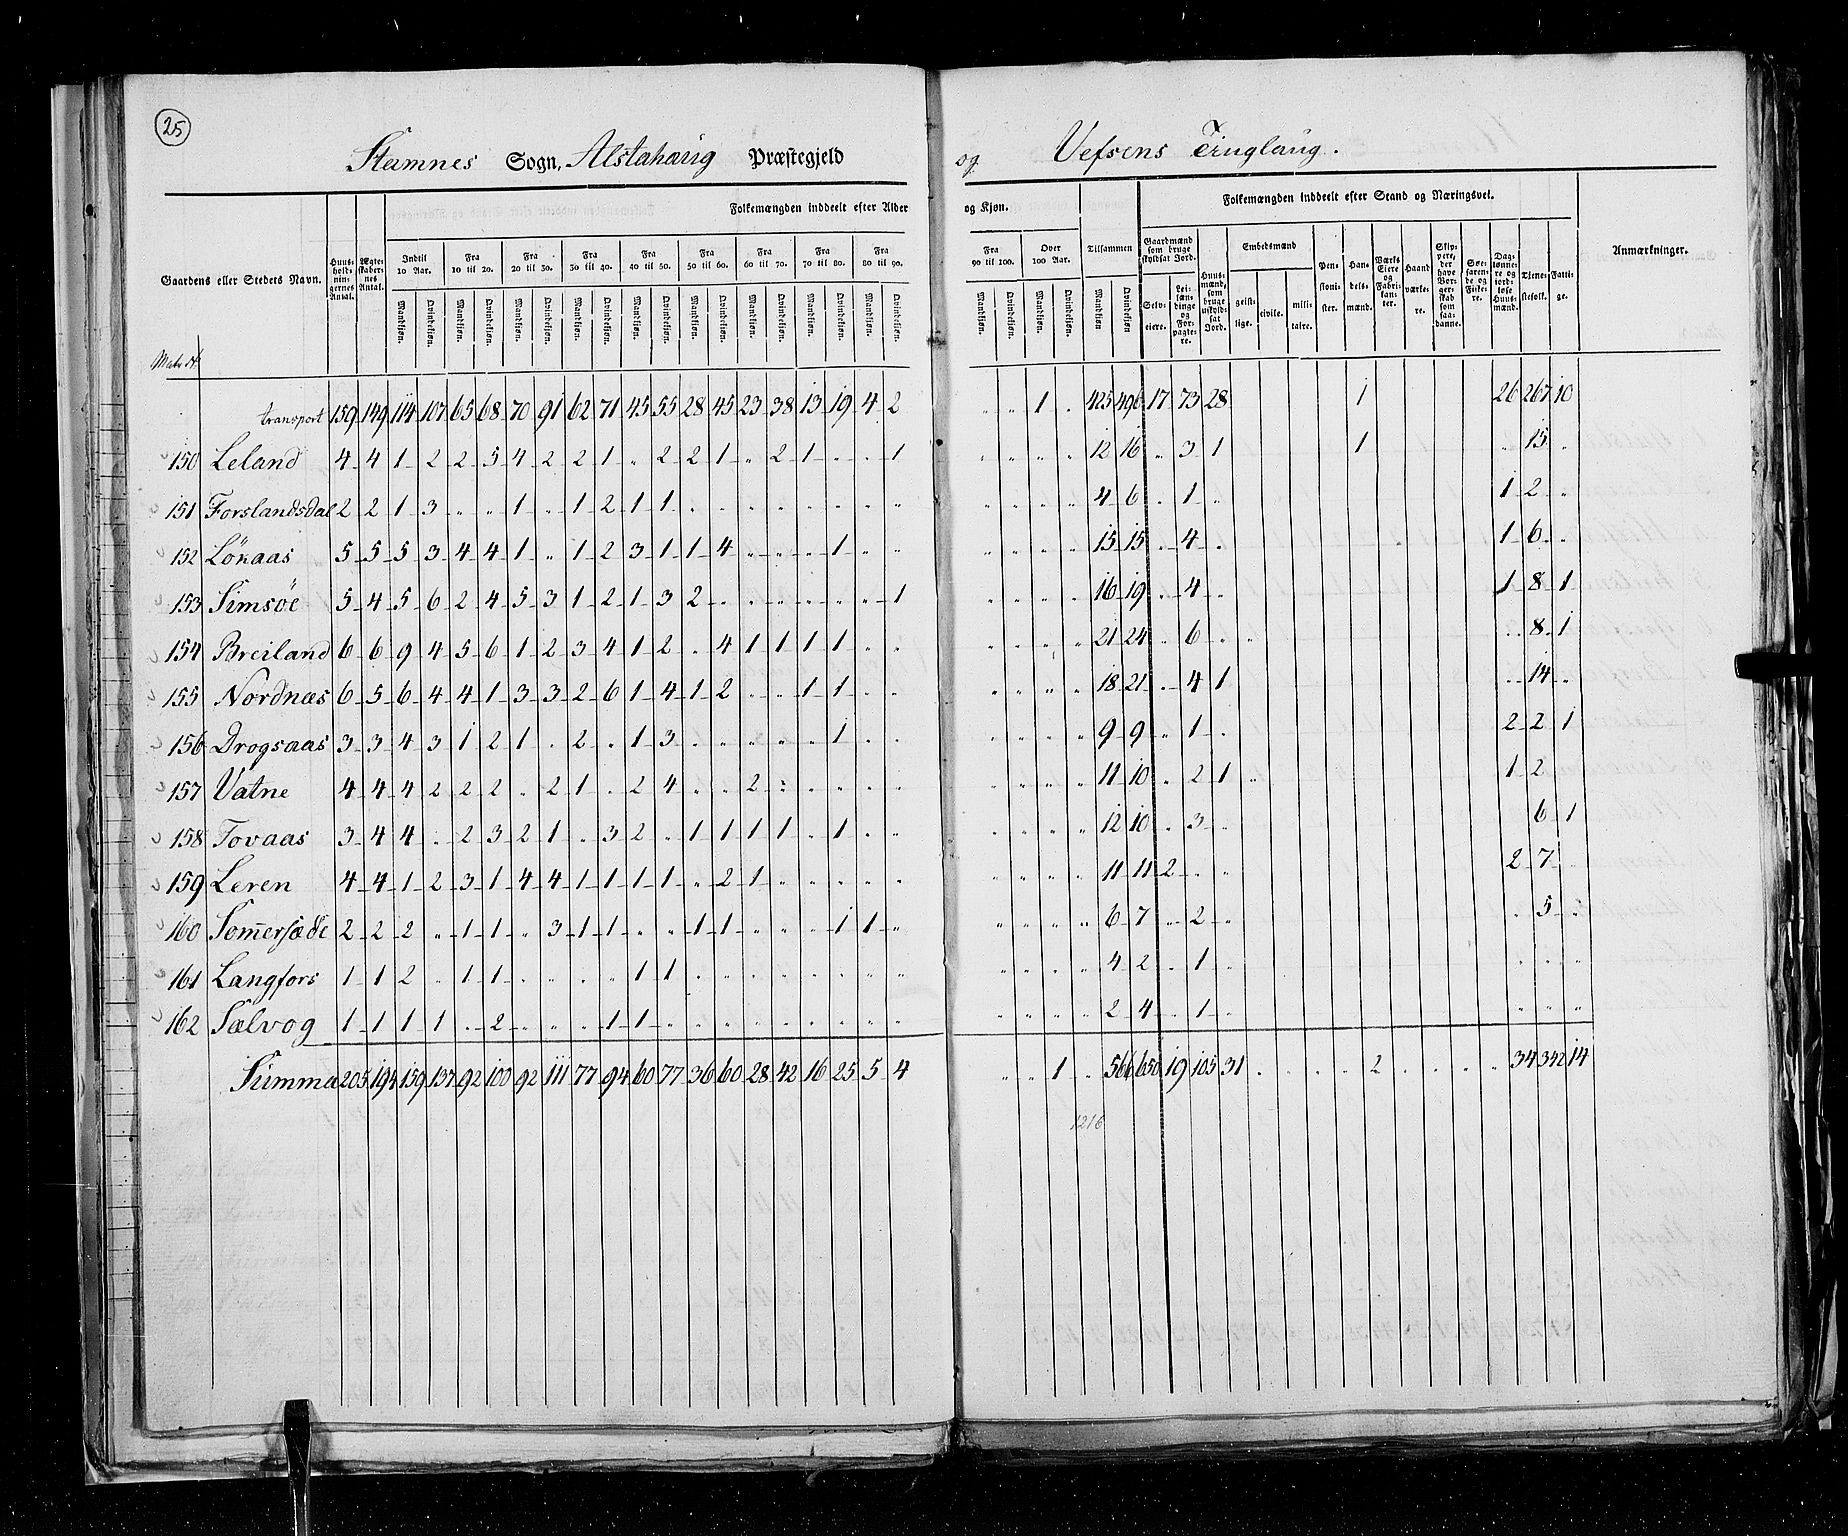 25
Stamnes Sogn, Alstahaug Præstegjeld og Vefsens Tinglaug.
Gaardens eller Stedets Navn. Huus-holdningernes Antal. Ægteskabernes Antal. Folkemængden inddeelt efter Alder og Kjøn. Tilsammen Folkemængden inddeelt efter Stand og Næringsvei. Anmærkninger.
Indtil 10 Aar. Fra 10 til 20. Fra 20 til 30. Fra 30 til 40. Fra 40 til 50. Fra 50 til 60. Fra 60 til 70. Fra 70 til 80. Fra 80 til 90. Fra 90 til 100. Over 100 Aar.
Gaardmænd som bruge skyldsat Jord. Huusmænd, som bruge uskyldsat Jord. Embedsmænd Pensionister. Handelsmænd. Værks Eiere og Fabrikanter. Haandværkere. Skippere, der have Borgerskab som saadanne. Søefarende og Fiskere. Daglønnere og jordløse Huusmænd. Tjenestefolk. Fattige.
Mandkjøn. Qvindekjøn. Mandkjøn. Qvindekjøn. Mandkjøn. Qvindekjøn. Mandkjøn. Qvindekjøn. Mandkjøn. Qvindekjøn. Mandkjøn. Qvindekjøn. Mandkjøn. Qvindekjøn. Mandkjøn. Qvindekjøn. Mandkjøn. Qvindekjøn. Mandkjøn. Qvindekjøn. Mandkjøn. Qvindekjøn. Mandkjøn Qvindekjøn Selveiere. Leilændinge og Forpagtere. geistlige. civile. militaire.
Matr №
transport 159 149 114 107 65 68 70 91 62 71 45 55 28 45 23 38 13 19 4 2 " " 1 " 425 496 17 73 28 1 26 267 10
150 Leland 4 4 1 2 2 5 4 2 2 1 " 2 2 1 " 2 1 " " 1 " " " " 12 16 " 3 1 1 " 15 "
151 Forslandsdal 2 2 1 3 " " 1 " 1 2 1 1 " " " " " " " " " " " " 4 6 " 1 " 1 2 "
152 Lökaas 5 5 5 3 4 4 1 " 1 2 3 1 1 4 " " " 1 " " " " " " 15 15 " 4 " 1 6 "
153 Simsöe 5 4 5 6 2 4 5 3 1 2 1 3 2 " " " " " " 1 " " " " 16 19 " 4 " 1 8 1
154 Breiland 6 6 9 4 5 6 1 2 3 4 1 2 " 4 1 1 1 1 " " " " " " 21 24 " 6 " " " 8 1
155 Nordnæs 6 5 6 4 4 1 3 3 2 6 1 4 1 2 " " 1 1 " " " " " " 18 21 " 4 1 " 14 "
156 Drogsaas 3 3 4 3 1 2 1 " 2 " 1 3 " " " " " 1 " " " " " " 9 9 " 1 " 2 2 1
157 Vatne 4 4 4 2 2 2 " 2 1 " 2 4 " " 2 " " " " " " " " " 11 10 " 2 1 " 1 2
158 Tovaas 3 4 4 " 2 3 2 1 " 3 2 " 1 1 1 1 " 1 " " " " " " 12 10 " 3 " 6 1
159 Leren 4 4 1 2 3 1 4 4 1 1 1 1 " 2 1 " " " " " " " " " 11 11 2 " " 2 7 "
160 Som̅ersæde 2 2 2 " 1 1 " 3 1 1 " " 1 1 " " " 1 1 " " " " " 6 7 " 2 " " 5 "
161 Langfors 1 1 2 " 1 1 " " " " 1 1 " " " " " " " " " " " " 4 2 " 1 " " " "
162 Sælvog 1 1 1 1 " 2 " " " 1 1 " " " " " " " " " " " " " 2 4 " 1 " " " "
Summa 205 194 159 137 92 100 92 111 77 94 60 77 36 60 28 42 16 25 5 4 " " 1 " 566 650 19 105 31 " " " " 2 " " " " 34 342 14
1216